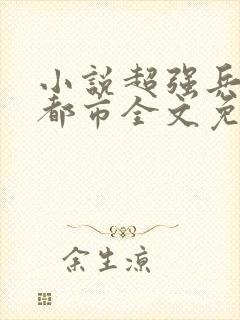 小説超强兵
都市全文免
余生凉